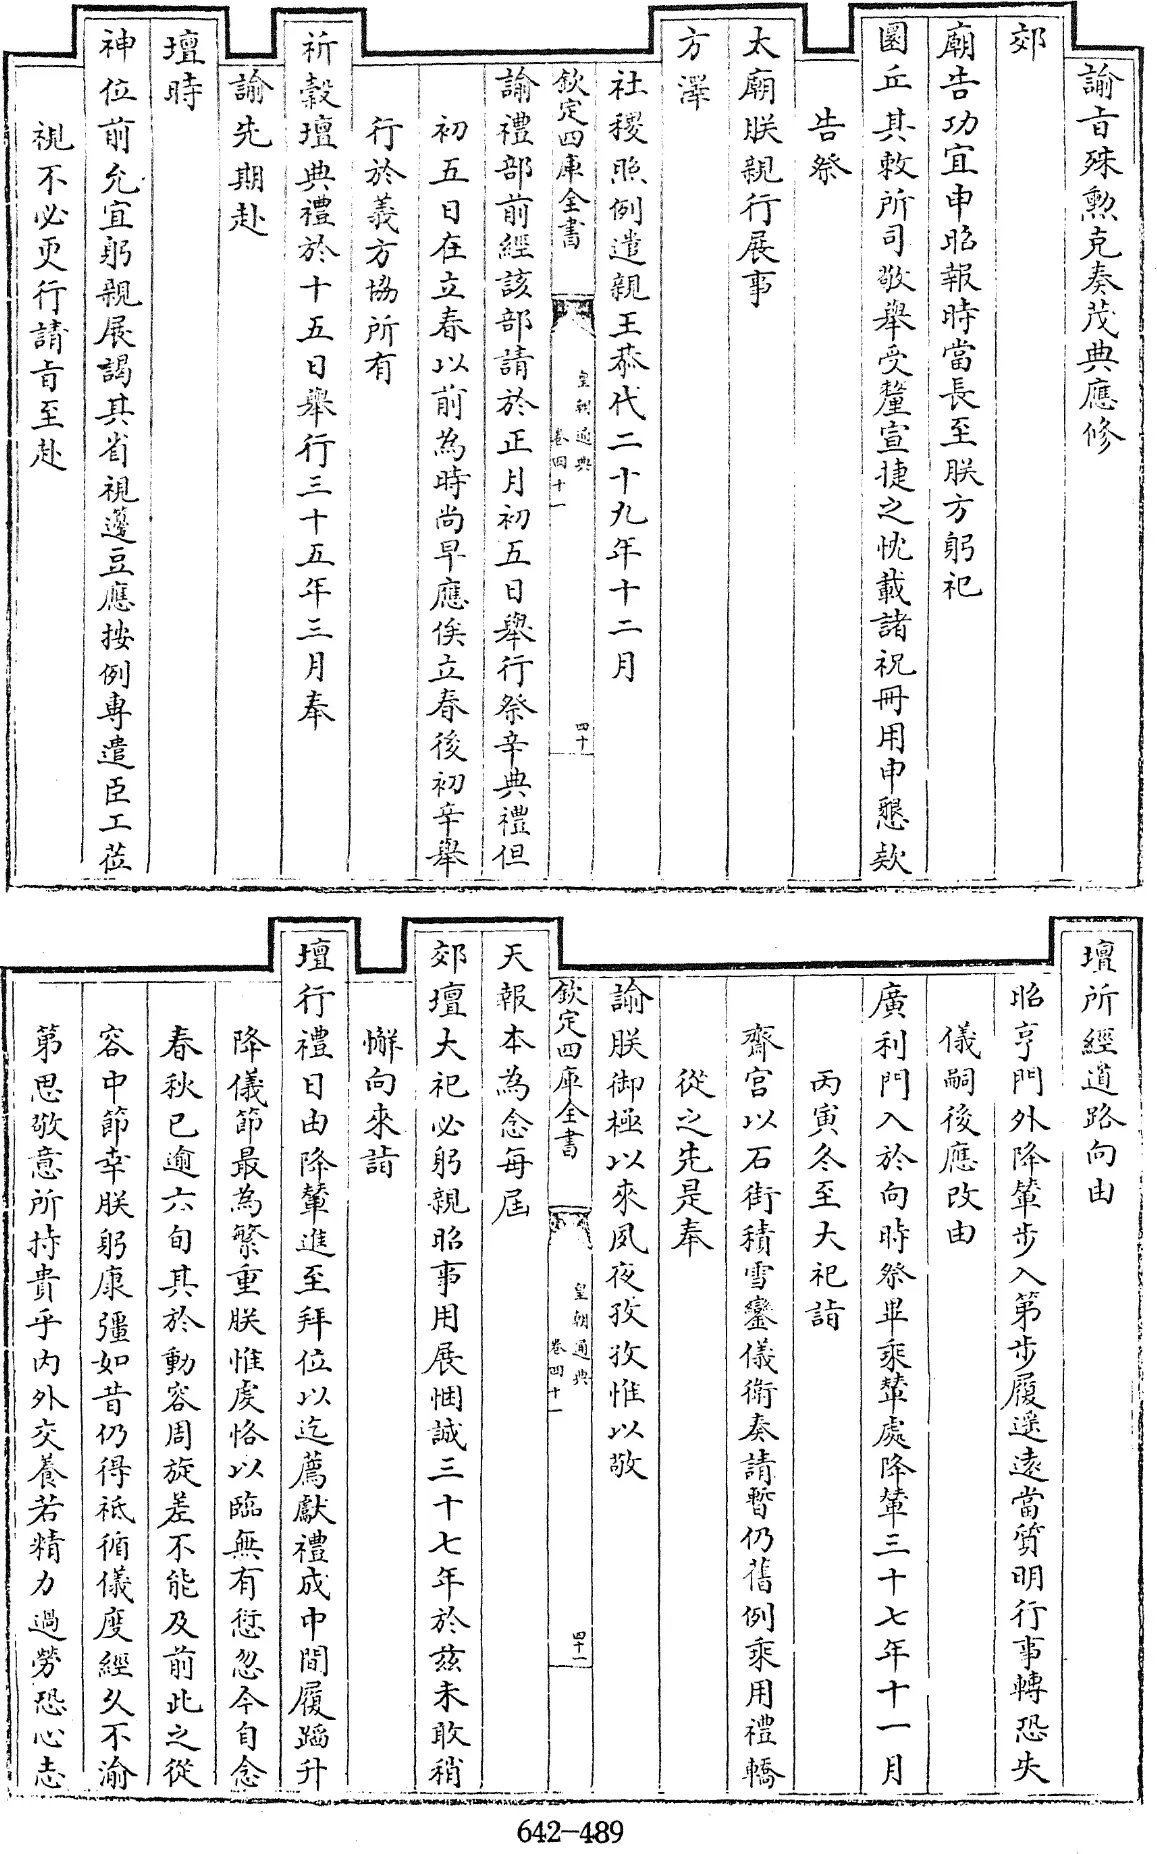 諭旨殊勲克奏茂典應修
郊
廟告功宜申昭報時當長至朕方躬祀
圜丘其敕所司敬舉受釐宣捷之忱載諸祝冊用申懇欵
告祭
太廟朕親行展事
方澤
社稷照例遣親王恭代二十九年十二月
欽定四庫全書
皇朝通典
卷四十一
四十
諭禮部前經該部請於正月初五日舉行祭辛典禮但
初五日在立春以前為時尚早應俟立春後初辛舉
行於義方協所有
祈穀壇典禮於十五日舉行三十五年三月奉
諭先期赴
壇時
神位前允宜躬親展謁其省視籩豆應按例專遣臣工莅
視不必更行請旨至赴
壇所經道路向由
昭亨門外降輦步入第步履遥遠當質明行事轉恐失
儀嗣後應改由
廣利門入於向時祭畢乘輦處降輦三十七年十一月
丙寅冬至大祀詣
齋宮以石街積雪鑾儀衛奏請暫仍舊例乘用禮轎
從之先是奉
諭朕御極以來夙夜孜孜惟以敬
欽定四庫全書
皇朝通典
卷四十一
四十一
天報本為念每屆
郊壇大祀必躬親昭事用展悃誠三十七年於茲未敢稍
懈向來詣
壇行禮日由降輦進至拜位以迄薦獻禮成中間履蹈升
降儀節最為繁重朕惟虔恪以臨無有愆忽今自念
春秋已逾六旬其於動容周旋差不能及前此之從
容中節幸朕躬康彊如昔仍得祗循儀度經久不渝
第思敬意所持貴乎内外交養若精力過勞恐心志
642-489